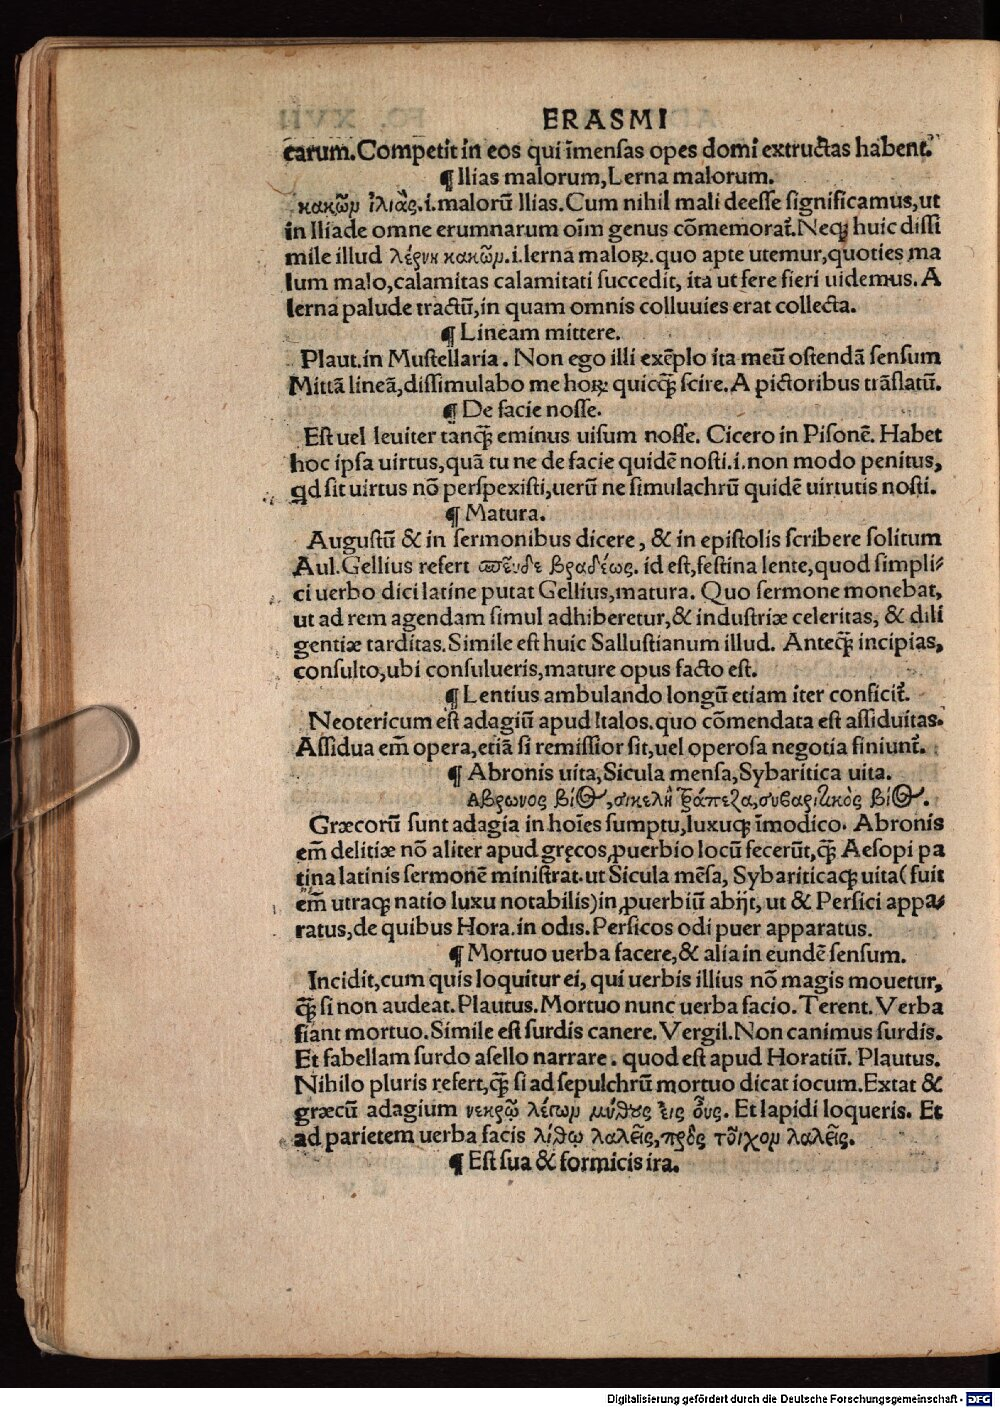 ERASMI
carum. Competit in eos qui im̄ensas opes domi extructas habent.
¶ Ilias malorum, Lerna malorum.
κακῶν ἰλιὰς. i. malorū Ilias. Cum nihil mali deesse significamus, ut
in Iliade omne erumnarum oīm genus cōmemorat᷑. Neq; huic dissi
mile illud λέρνη κακῶν. i. lerna maloꝝ. quo apte utemur, quoties ma
lum malo, calamitas calamitati succedit, ita ut fere fieri uidemus. A
lerna palude tractū, in quam omnis colluuies erat collecta.
¶ Lineam mittere.
Plaut. in Mustellaria. Non ego illi exēplo ita meū ostendā sensum
Mittā lineā, dissimulabo me hoꝝ quicq̄ȝ scire. A pictoribus trāslatū.
¶ De facie nosse.
Est uel leuiter tanq̄ȝ eminus uisum nosse. Cicero in Pisonē. Habet
hoc ipsa uirtus, quā tu ne de facie quidē nosti. i. non modo penitus,
qd sit uirtus nō perspexisti, uerū ne simulachrū quidē uirtutis nosti.
¶ Matura.
Augustū & in sermonibus dicere, & in epistolis scribere solitum
Aul. Gellius refert σπεῦδε βραδέως. id est, festina lente, quod simpli⸗
ci uerbo dici latine putat Gellius, matura. Quo sermone monebat,
ut ad rem agendam simul adhiberetur, & industriæ celeritas, & dili
gentiæ tarditas. Simile est huic Sallustianum illud. Anteq̄ȝ incipias,
consulto, ubi consulueris, mature opus facto est.
¶ Lentius ambulando longū etiam iter conficit᷑.
Neotericum est adagiū apud Italos. quo cōmendata est assiduitas.
Assidua em̄ opera, etiā si remissior sit, uel operosa negotia finiunt᷑.
¶ Abronis uita, Sicula mensa, Sybaritica uita.
Αβρωνος βίος, σικελὴ τράπεζα, συβαριτικὸς βίος.
Græcorū sunt adagia in hoīes sumptu, luxuq; īmodico. Abronis
em̄ delitiæ nō aliter apud gręcos, ꝓuerbio locū fecerūt, q̄ȝ Aesopi pa
tina latinis sermonē ministrat. ut Sicula mēsa, Sybariticaq; uita (fuit
em̄ utraq; natio luxu notabilis) in ꝓuerbiū abijt, ut & Persici appa⸗
ratus, de quibus Hora. in odis. Persicos odi puer apparatus.
¶ Mortuo uerba facere, & alia in eundē sensum.
Incidit, cum quis loquitur ei, qui uerbis illius nō magis mouetur,
q̄ȝ si non audeat. Plautus. Mortuo nunc uerba facio. Terent. Verba
fiant mortuo. Simile est surdis canere. Vergil. Non canimus surdis.
Et fabellam surdo asello narrare. quod est apud Horatiū. Plautus.
Nihilo pluris refert, q̄ȝ si ad sepulchrū mortuo dicat iocum. Extat &
græcū adagium νεκρῷ λέγων μύθους εἰς οὖς. Et lapidi loqueris. Et
ad parietem uerba facis λίθῳ λαλεῖς, πρὸς τοῖχον λαλεῖς.
¶ Est sua & formicis ira.
Digitalisierung gefördert durch die Deutsche Forschungsgemeinschaft - DFG